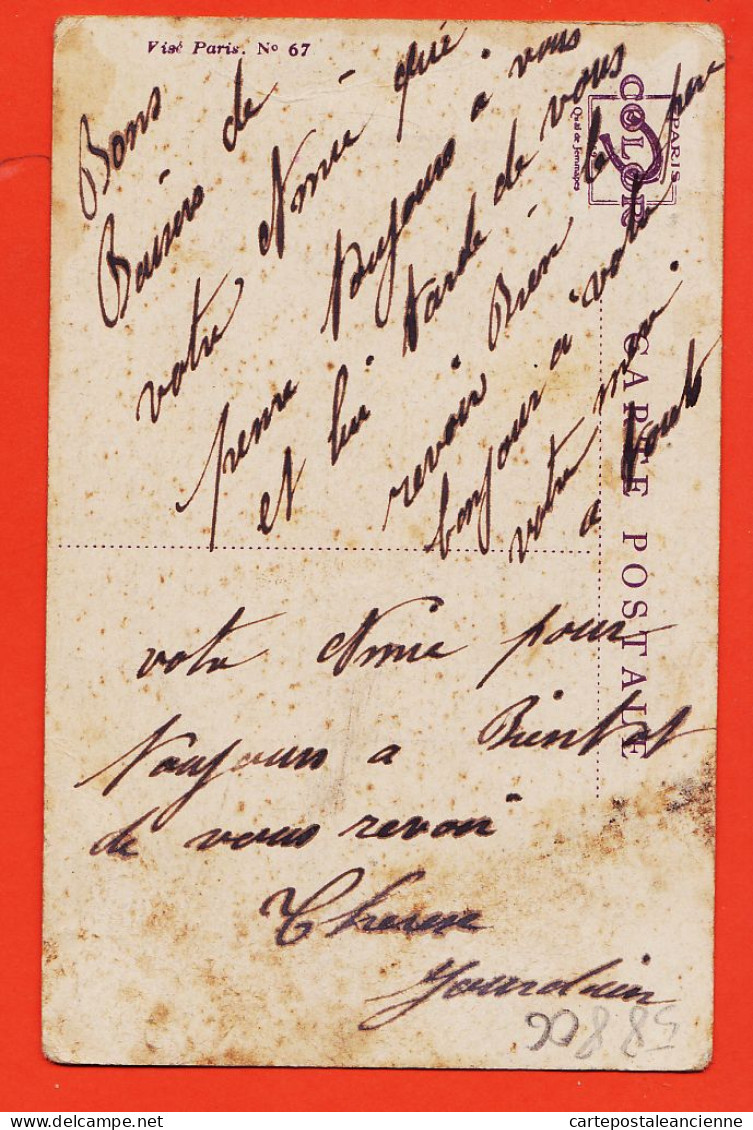 Visé Paris. No 67
Bons
Baisers de
votre Amie qui
pense toujours a vous
et lui tarde de vous
revoir Bien le
bonjour a votre pere
votre mere
a tout
PARIS
COLOR
Quai de Jemmapes
CARTE POSTALE
votre Amie pour
toujours a Bientot
de vous revoir
Therese
Jourdain
cartepostaleancienne